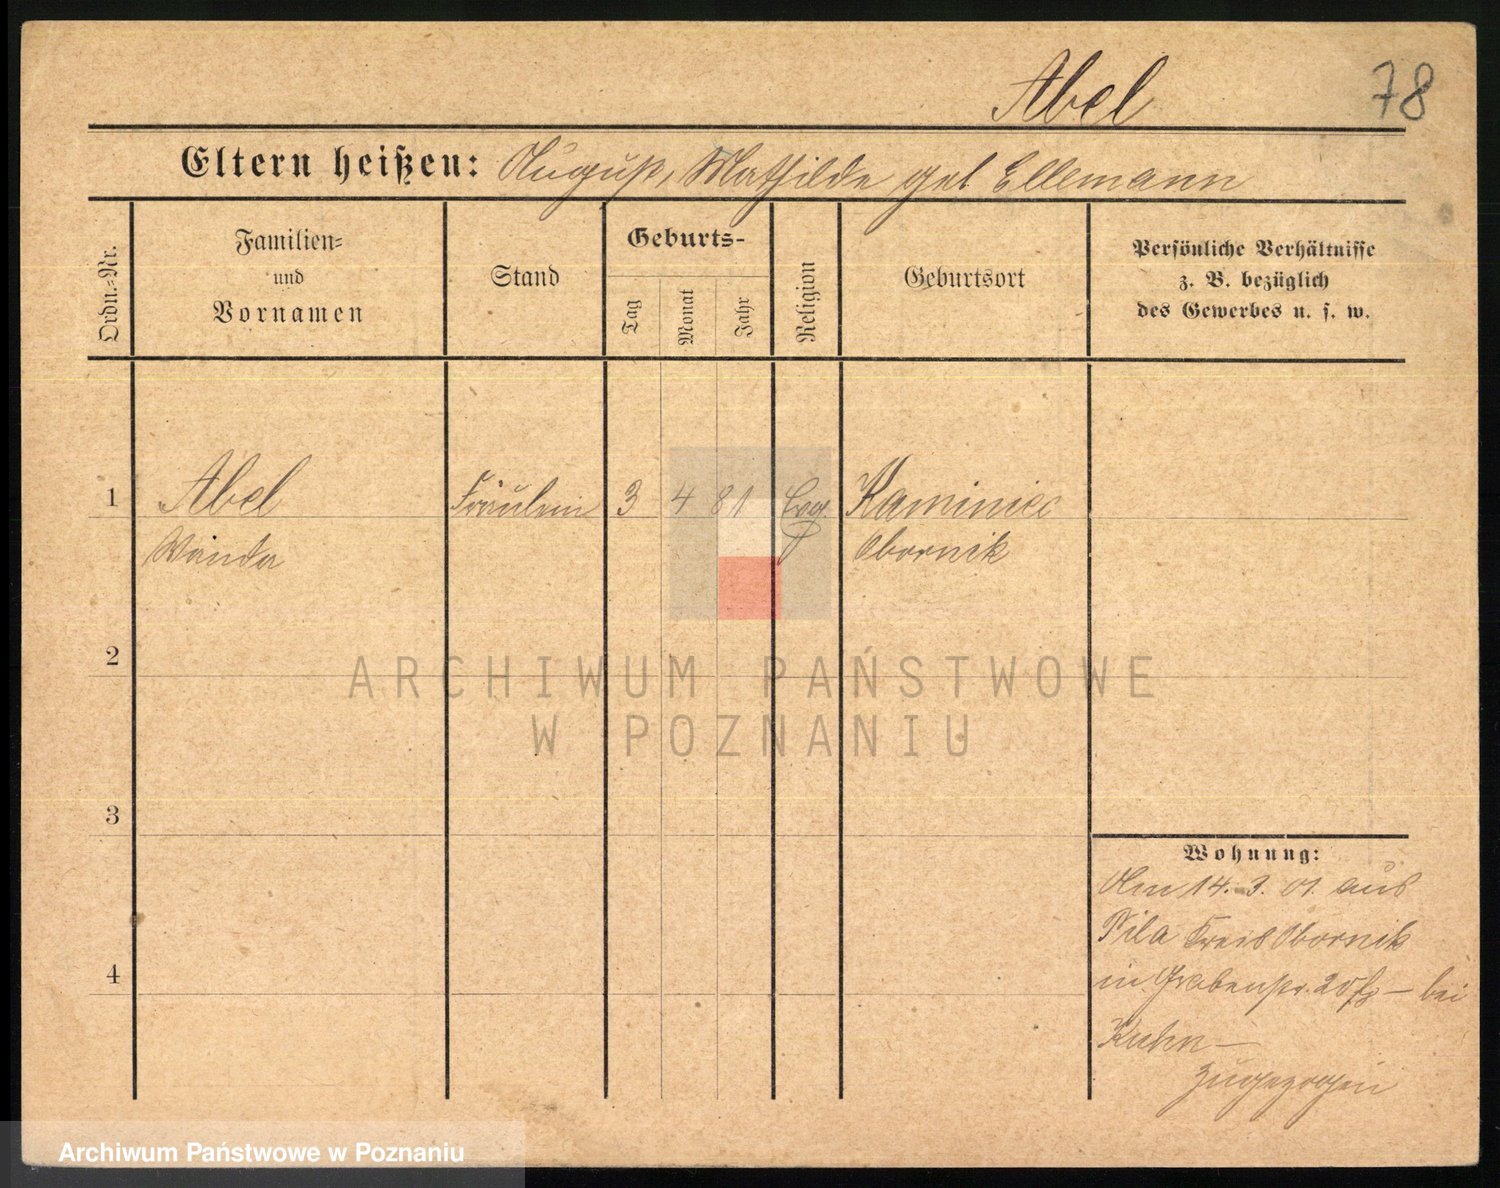 Abel
78
Eltern heißen: August, Mathilde geb Ellemann
Ordn.=Nr.
Familien=
und
Vornamen
Stand
Geburts-
Tag
Monat
Jahr
Religion
Geburtsort
Persönliche Verhältnisse
z. B. bezüglich
des Gewerbes u. s. w.
1 Abel Fräulein 3 4 81 Evg. Kaminiec
Wanda Obornik
2
ARCHIWUM PAŃSTWOWE
W POZNANIU
3
Wohnung:
Am 14. 3. 01. aus
Pila Kreis Obornik
4
in Grabenstr. 25 — bei
Kuhn —
zugezogen
Archiwum Państwowe w Poznaniu